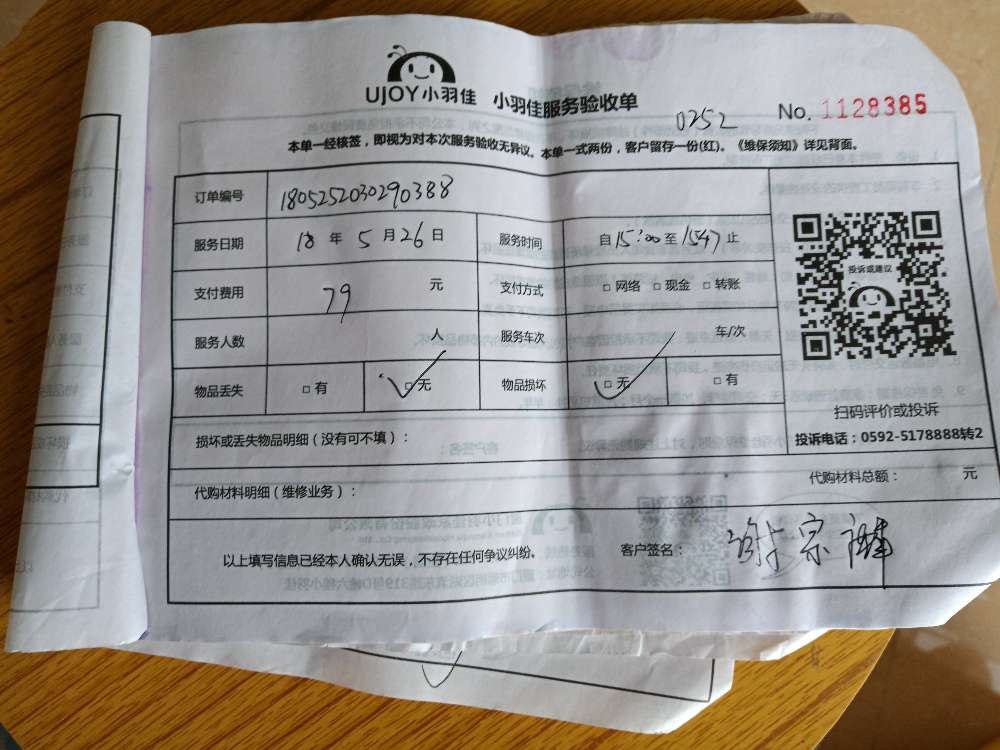 UJOY小羽佳 小羽佳服务验收单
0252 No. 1128385
本单一经核签，即视为对本次服务验收无异议。本单一式两份，客户留存一份(红)。《维保须知》详见背面。
订单编号 180525203029 0388
服务日期 18 年 5 月 26 日 服务时间 自 15:00 至 1547 止
投诉或建议
支付费用 79 元 支付方式 □ 网络 □ 现金 □ 转账
服务人数 人 服务车次 车/次
物品丢失 □ 有 □ 无 物品损坏 □ 无 □ 有
扫码评价或投诉
投诉电话：0592-5178888转2
损坏或丢失物品明细（没有可不填）：
代购材料明细（维修业务）： 代购材料总额： 元
以上填写信息已经本人确认无误，不存在任何争议纠纷。 客户签名：